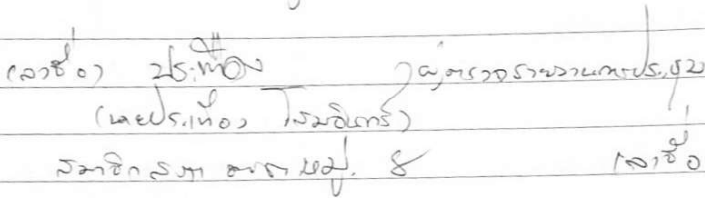 (ลงชื่อ) ประเทือง ผู้ตรวจรายงานการประชุม
(นายประเทือง โสมอินทร์)
สมาชิกสภา อบต. หมู่. 8 (ลงชื่อ